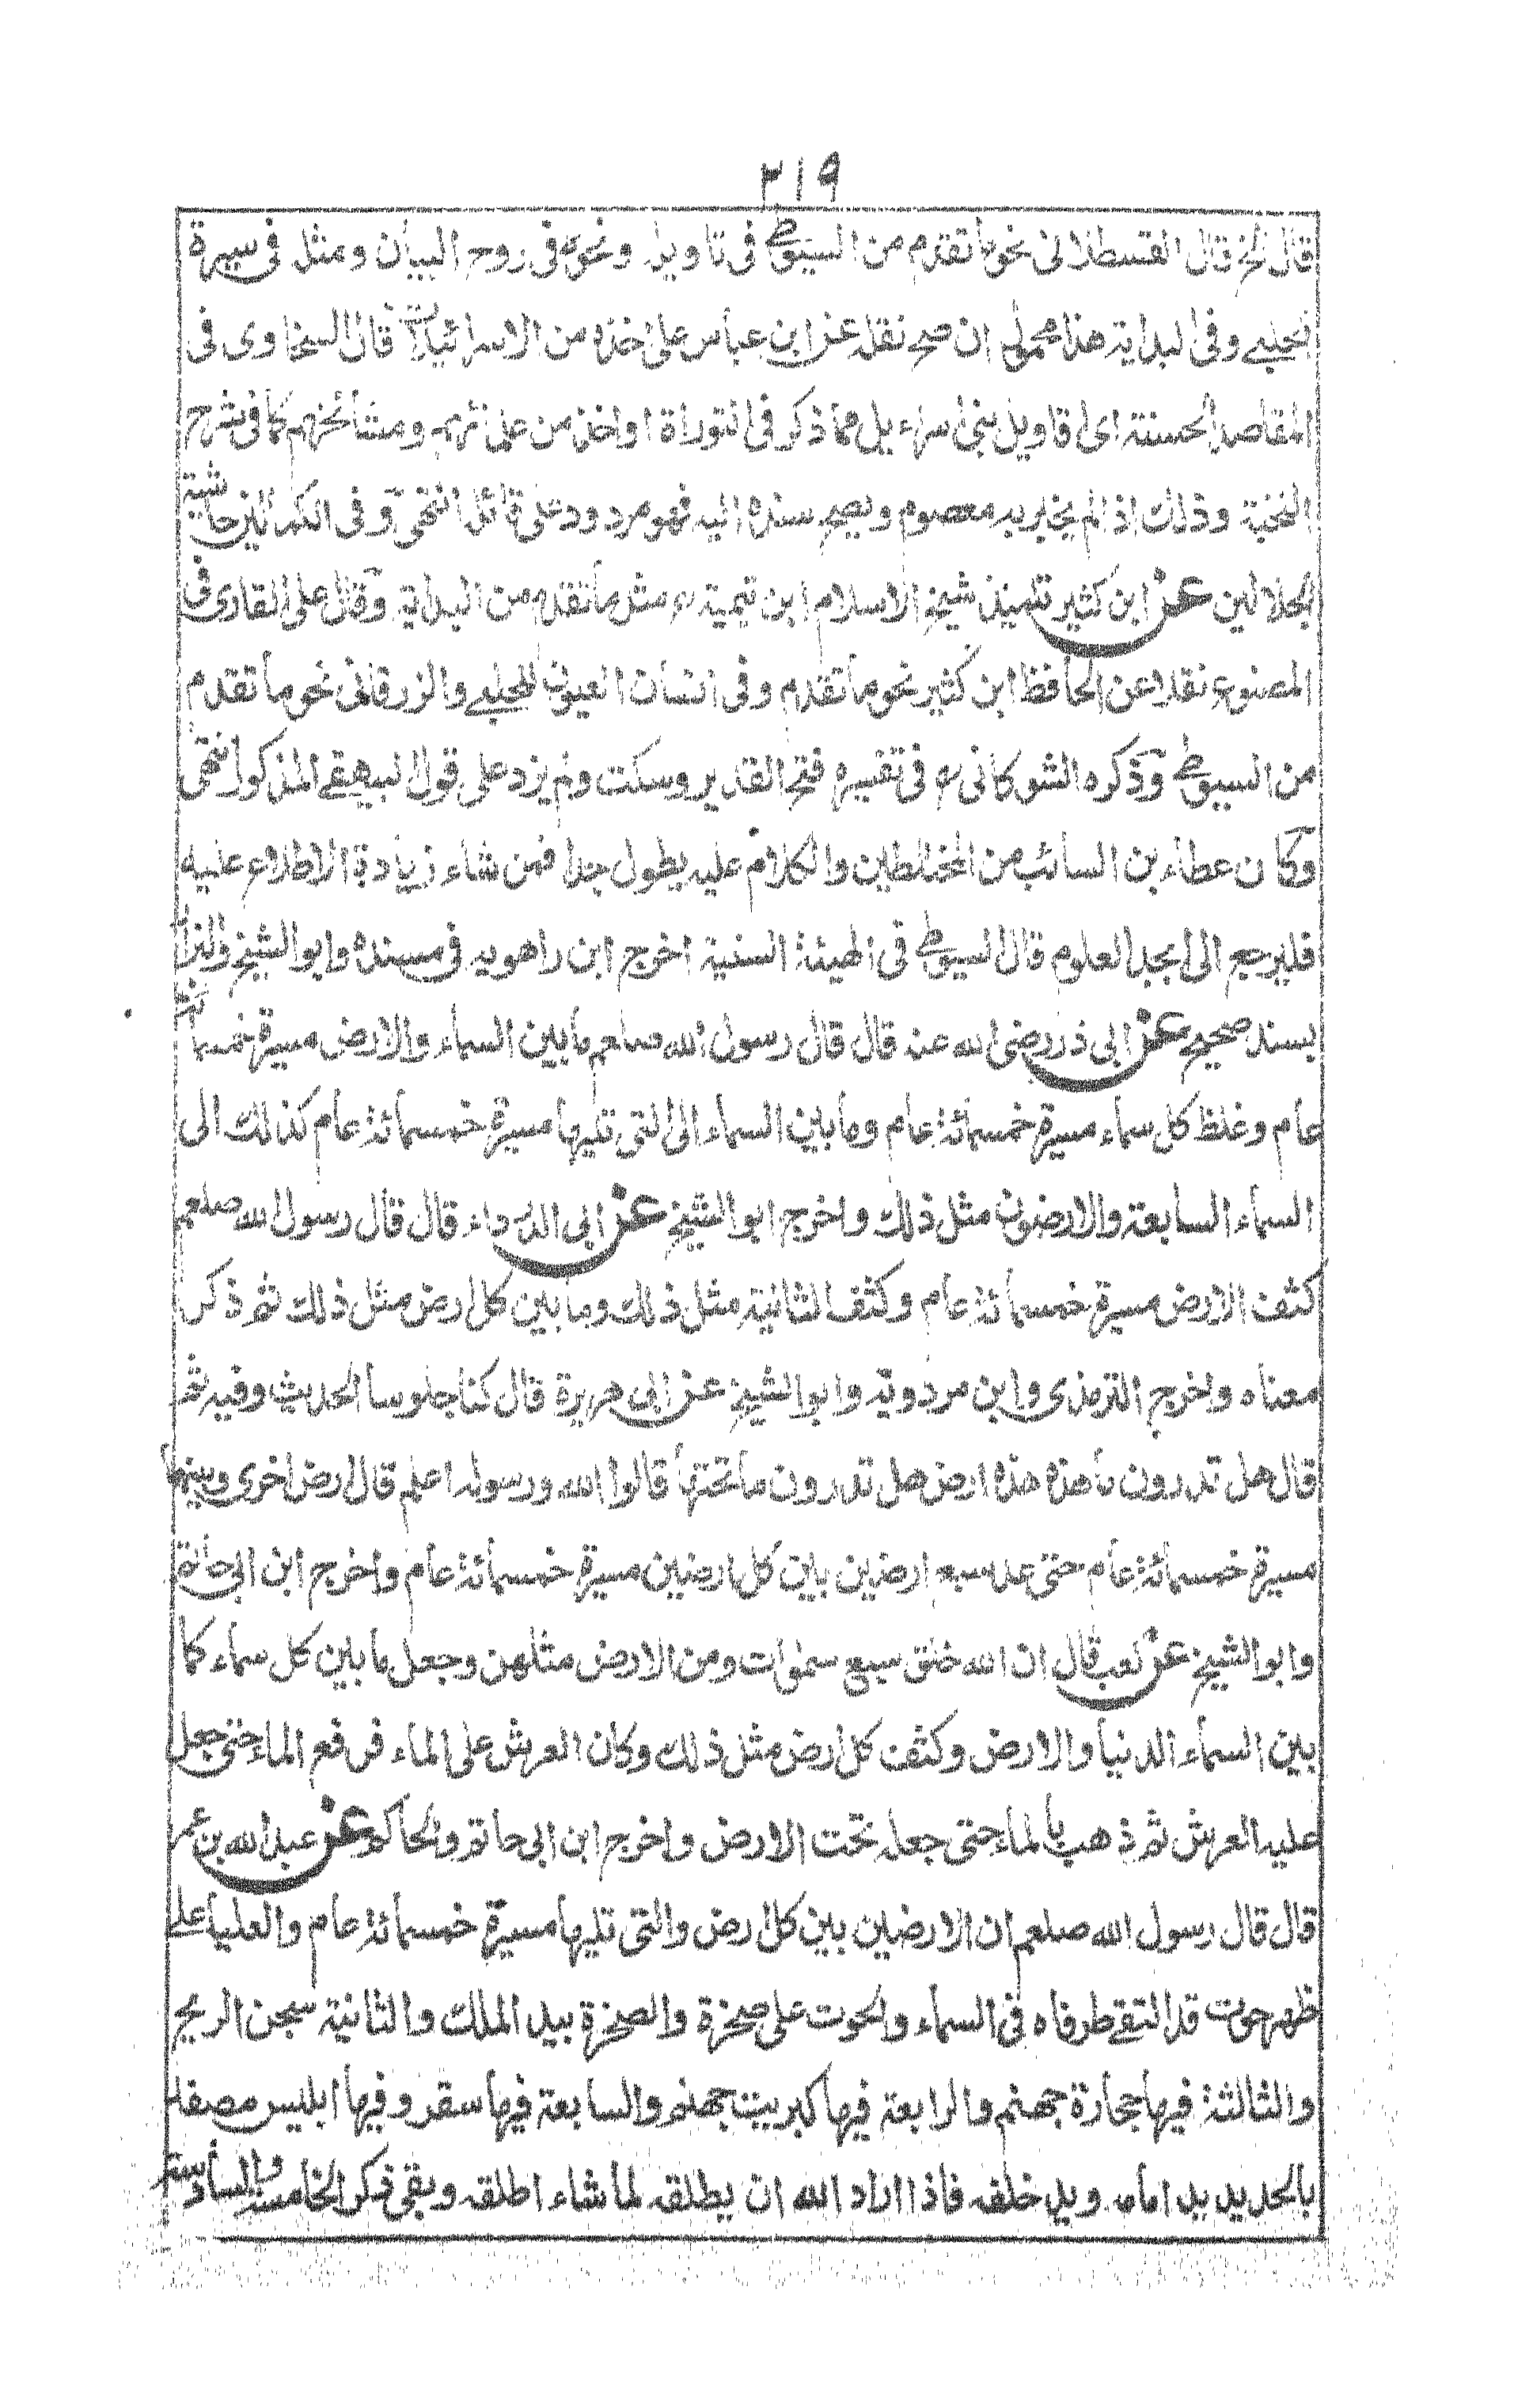 ٣١٩
قال الخ قال القسطلانى نحو ما تقدم من السيوطى فى تاويله ونحوه فى روح البيان ومثل فى سيرة
الحلبى وفى البداية هذا محمول ان صح نقله عن ابن عباس على اخذه من الاسرائيليات قال السخاوى فى
المقاصد الحسنة اى اقاويل بنى اسراءيل مما ذكر فى التوراة او اخذ من علمائهم ومشائخهم كما فى شرح
النخبة وذلك اذا لم يخبر به معصوم ويصح سنده اليه فهو مردود على قائله انتهى وفى الكمالين حاشية
الجلالين عن ابن كثير تلميذ شيخ الاسلام ابن تيمية مثل ما تقدم من البداية وقال على القارى فى
المصنوع نقلا عن الحافظ ابن كثير نحو ما تقدم وفى انسان العيون للحلبى والزرقانى نحو ما تقدم
من السيوطى وذكره الشوكانى فى تفسيره فتح القدير وسكت ولم يزد على قول البيهقى المذكور انتهى
وكان عطاء بن السائب من المختلطين والكلام عليه يطول جدا فمن شاء زيادة الاطلاع عليه
فليرجع الى ابجد العلوم قال السيوطى فى الهيئة السنية اخرج ابن راهويه فى مسنده وابو الشيخ والبزار
بسند صحيح عن ابى ذر رضى الله عنه قال قال رسول الله صلعم ما بين السماء والارض مسيرة خمسمائة
عام وغلظ كل سماء مسيرة خمسمائة عام وما بين السماء الى التى تليها مسيرة خمسمائة عام كذلك الى
السماء السابعة والارضون مثل ذلك واخرج ابو الشيخ عن ابى الدرداء قال قال رسول الله صلعم
كثف الارض مسيرة خمسمائة عام وكثف الثانية مثل ذلك وما بين كل ارض مثل ذلك ثم ذكر
معناه واخرج الترمذى وابن مردوية وابو الشيخ عن ابى هريرة قال كنا جلوسا الحديث وفيه ثم
قال هل تدرون ما هذه هذه ارض هل تدرون ما تحتها قالوا الله ورسوله اعلم قال ارض اخرى وبينهما
مسيرة خمسمائة عام حتى عد سبع ارضين بين كل ارضين مسيرة خمسمائة عام واخرج ابن ابى حاتم
وابو الشيخ عن كعب قال ان الله خلق سبع سموات ومن الارض مثلهن وجعل ما بين كل سماء كما
بين السماء الدنيا والارض وكثف كل ارض مثل ذلك وكان العرش على الماء فرفع الماء حتى جعل
عليه العرش ثم ذهب بالماء حتى جعله تحت الارض واخرج ابن ابى حاتم والحاكم عن عبد الله بن عمر
قال قال رسول الله صلعم ان الارضين بين كل ارض والتى تليها مسيرة خمسمائة عام والعليا على
ظهر حوت قد التقى طرفاه فى السماء والحوت على صخرة والصخرة بيد الملك والثانية سجن الريح
والثالثة فيها حجارة جهنم والرابعة فيها كبريت جهنم والسابعة فيها سقر وفيها ابليس مصفد
بالحديد يد امامه ويد خلفه فاذا اراد الله ان يطلقه لما شاء اطلقه وبقى ذكر الخامسة والسادسة